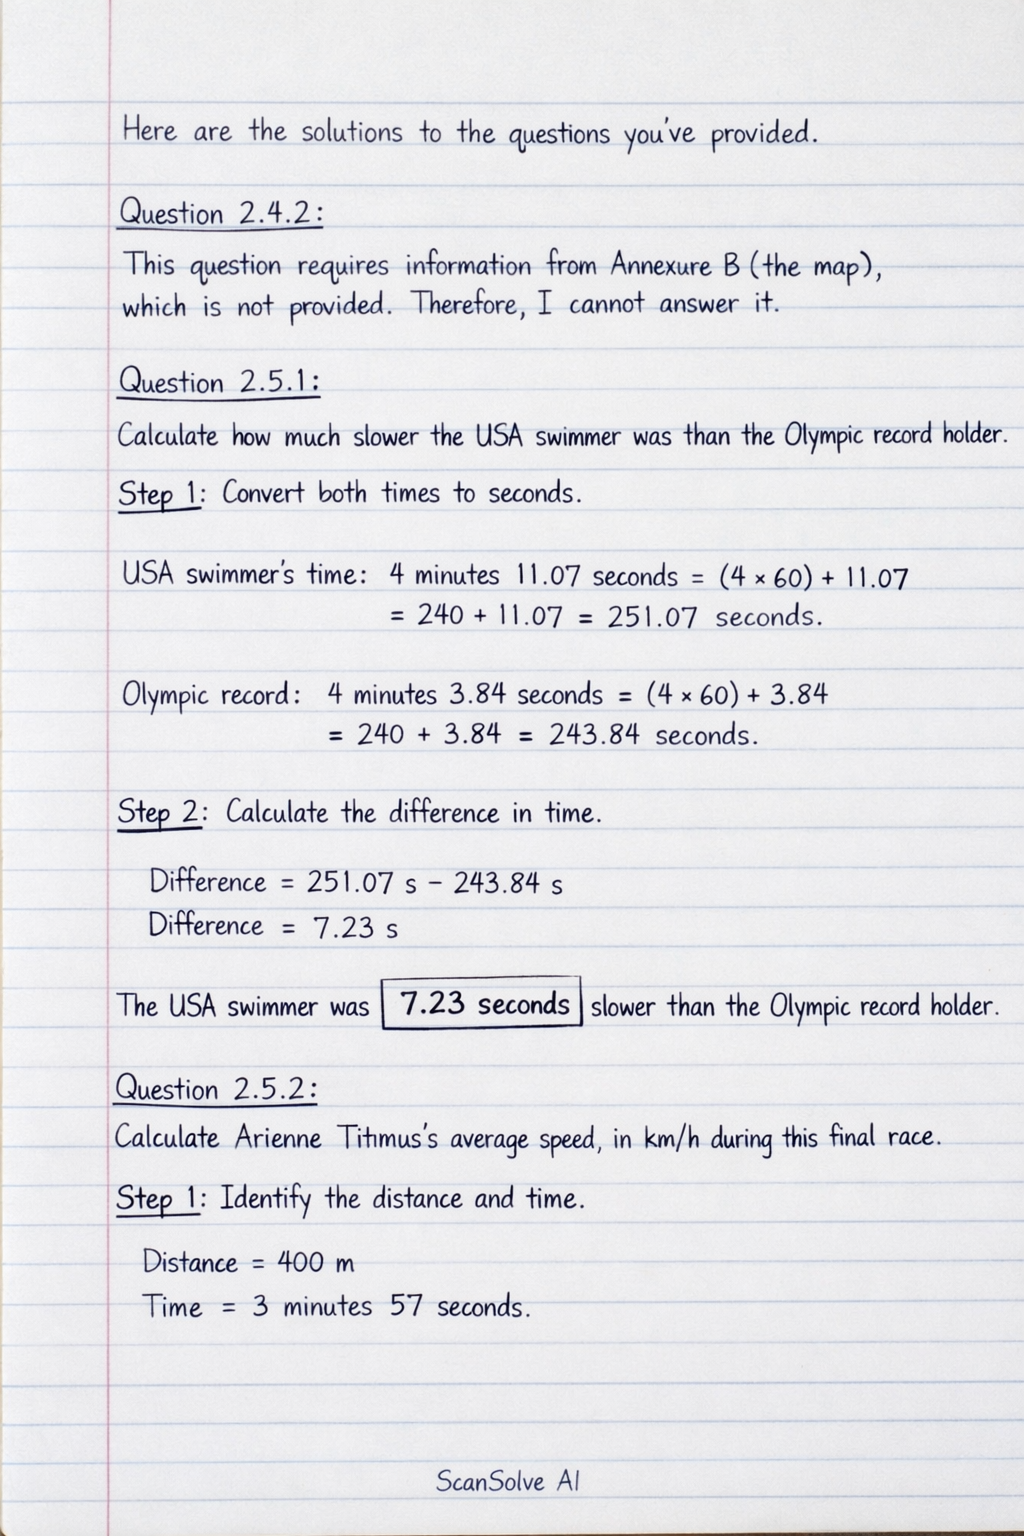 Here are the solutions to the questions you've provided.
Question 2.4.2:
This question requires information from Annexure B (the map),
which is not provided. Therefore, I cannot answer it.
Question 2.5.1:
Calculate how much slower the USA swimmer was than the Olympic record holder.
Step 1: Convert both times to seconds.
USA swimmer's time: 4 minutes 11.07 seconds = (4 × 60) + 11.07
= 240 + 11.07 = 251.07 seconds.
Olympic record: 4 minutes 3.84 seconds = (4 × 60) + 3.84
= 240 + 3.84 = 243.84 seconds.
Step 2: Calculate the difference in time.
Difference = 251.07 s - 243.84 s
Difference = 7.23 s
The USA swimmer was 7.23 seconds slower than the Olympic record holder.
Question 2.5.2:
Calculate Arienne Titmus's average speed, in km/h during this final race.
Step 1: Identify the distance and time.
Distance = 400 m
Time = 3 minutes 57 seconds.
ScanSolve AI